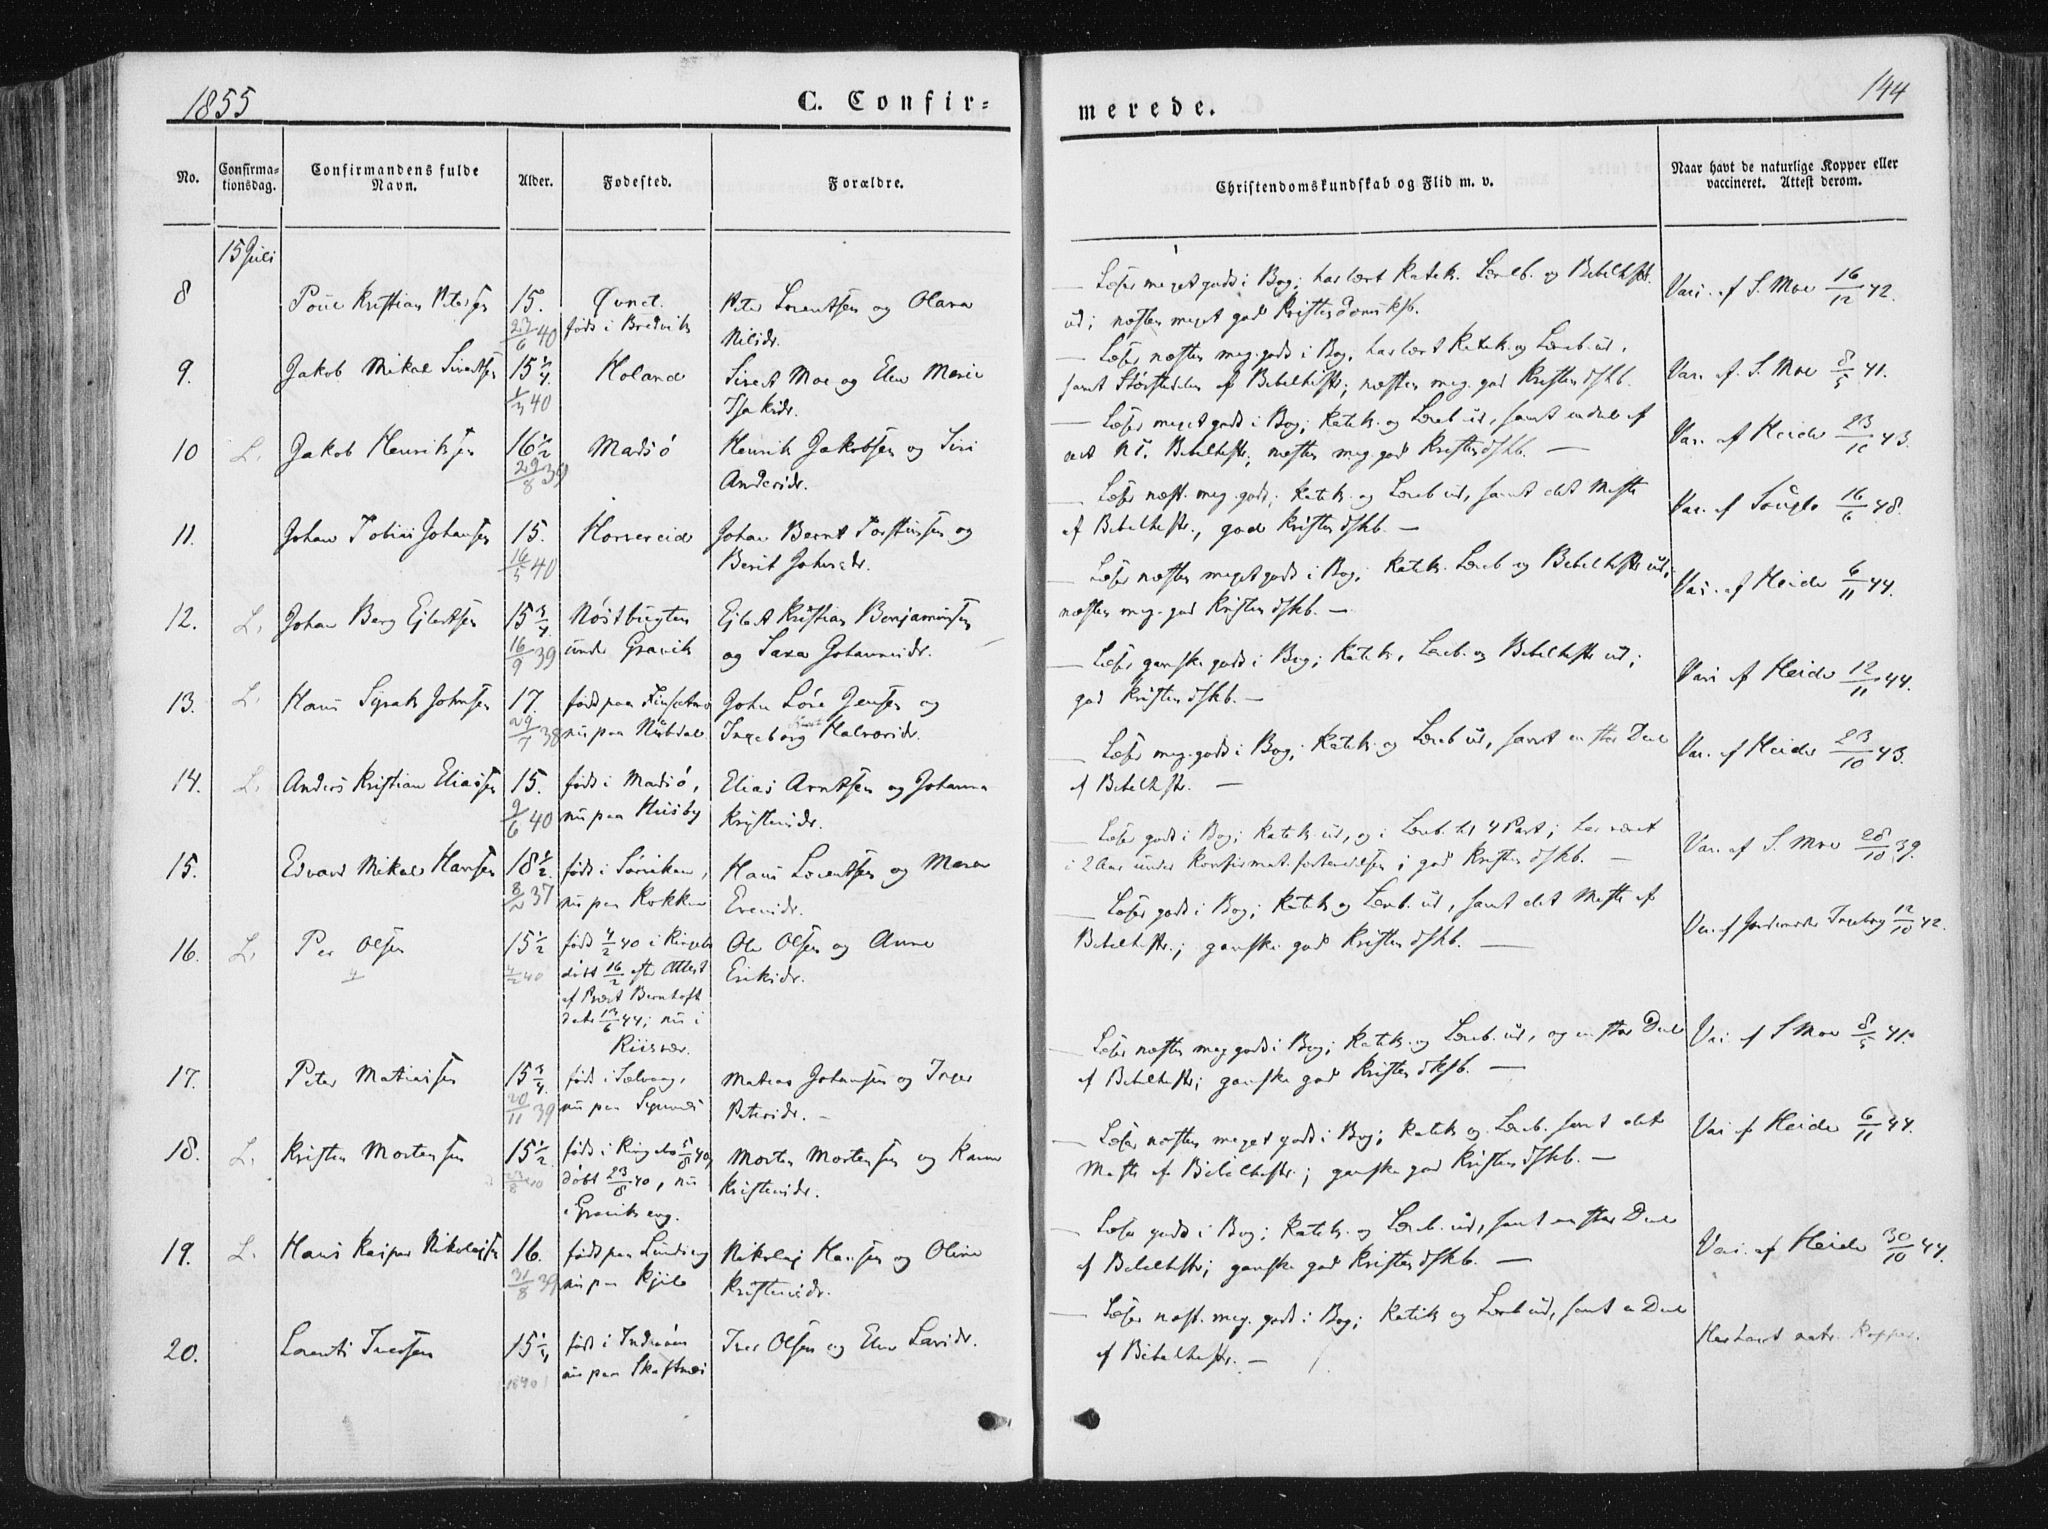 1855
C. Confir=
merede.
144
No.
Confirma-
tionsdag.
Confirmandens fulde
Navn.
Alder.
Fødested.
Forældre.
Christendomskundskab og Flid m. v.
Naar havt de naturlige Kopper eller
vaccineret. Attest derom.
15 Juli
8
Kristian Petersen
15.
23/6 40
født i Bredvik
Peter Lorentsen og Olava
Nilsdr.
— Læser meget godt i Bog; har lært Katek. Læreb. og Bibelhist.
ud; næsten meget god Kristendomsksb.
Vac. af S. Moe 16/12 42.
9.
Jakob Mikal Sivertsen
15 1/4
1/3 40
Holand
Sivert Moe og Elen Marie
Isaksdr.
— Læser næsten meg. godt i Bog, har lært Katek. og Læreb. ud,
samt Størstedelen af Bibelhist.; næsten meg. god Kristendskb.
Vac. af S. Moe 8/5 41.
10
L.
Jakob Henriksen
16 1/2
29/8 39
Madsø
Henrik Jakobsen og Siri
Andersdr.
— Læser meget godt i Bog; Katek. og Læreb. ud, samt endel af
Bibelhistr.; næsten meg. god Kristendskb. —
Vac. af Heide 23/10 43.
11.
Johan Tobias Johansen
15.
16/5 40
Horvereid
Johan Bernt Torstensen og
Berit Johnsdr.
— Læser næst. meg. godt; Katek. og Læreb. ud, samt det Meste
af Bibelhistr., god Kristendskb. —
Vac. af 16/6 48.
12.
L.
Johan Berg Ejlertsen
15 3/4
16/9 39
Nøstbugten
under Gravik
Ejlert Kristian Benjaminsen
og Sara Johannesdr.
— Læser næsten meget godt i Bog; Katek. Læreb. og Bibelhistr. ud;
næsten meg. god Kristendskb. —
Vac. af Heide 6/11 44.
13.
L.
Hans Sirak Johnsen
17.
29/7 38
født paa Finsetmo
nu paa Nubdal
John Løre Jensen og
Ingeborg Halvorsdr.
— Læser ganske godt i Bog; Katek. Læreb. og Bibelhistr. ud;
god Kristendskb. —
Vac. af Heide 12/11 44.
14.
L.
Anders Kristian Eliassen
15.
9/6 40
født i Madsø,
nu paa Husby
Elias Arntsen og Johanna
Kristensdr.
— Læser meg. godt i Bog; Katek. og Læreb. ud, samt en stor Deel
af Bibelhistr. —
Vac. af Heide 23/10 43.
15.
Edvard Mikal Hansen
18 1/2
8/2 37
født i Sørviken,
nu paa Kokken
Hans Lorentsen og Maren
Evensdr.
— Læser godt i Bog; Katek. ud, og i Læreb. til 4 Part; har været
i 2 Aar under Konfirmat. forberedelsen; god Kristendskb. —
Vac. af S. Moe 28/10 39.
16.
L.
Per Olsen
15 1/2
4/2 40
født 4/2 40 i Ringebo
døbt 16/2 efter Attest
af Præst Bernhoft
dat. 13/6 44; nu i
Riisvær.
Ole Olsen og Anne
Eriksdr.
— Læser godt i Bog; Katek. og Læreb. ud, samt det Meste af
Bibelhistr.; ganske god Kristendskb. —
Vac. af Jordemoder Ingeborg 12/10 42.
17.
Peter Matiassen
15 3/4
20/11 39
født i Sælvaag,
nu paa
Matias Johansen og Inger
Petersdr. —
— Læser næsten meg. godt i Bog; Katek. og Læreb. ud, og en stor Deel
af Bibelhistr.; ganske god Kristendskb. —
Vac. af S Moe 8/5 41.
18.
L.
Kristen Mortensen
15 1/2
født i Ringebo 5/8 40,
døbt 23/8 40, nu
i Graviksvog.
Morten Mortensen og Karen
Kristensdr.
— Læser næsten meget godt i Bog; Katek. og Læreb. samt det
Meste af Bibelhistr.; ganske god Kristendskb. —
Vac. af Heide 6/11 44.
19.
L.
Hans Kaspar Nikolajsen
16.
31/8 39
født paa Lunding
nu paa Kjile
Nikolaj Hansen og Oline
Kristensdr.
— Læser godt i Bog; Katek. og Læreb. ud, samt en stor Deel
af Bibelhistr.; ganske god Kristendskb. —
Vac. af Heide 30/10 44.
20.
Lorents Iversen
15 1/4
1840
født i Inderøen
nu paa Skaftnes
Iver Olsen og Elen Larsdr.
— Læser næst. meg. godt i Bog; Katek. og Læreb. ud, samt en Deel
af Bibelhistr. —
Har havt natr. Kopper.